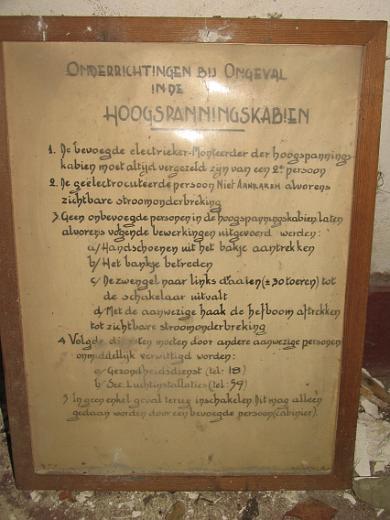 Onderrichtingen bij Ongeval
in de
Hoogspanningskabien
1. De bevoegde electrieker-Monteerder der hoogspannings
kabien moet altijd vergezeld zijn van een 2e persoon
2. De geëlectrocuteerde persoon Niet Aanraken alvorens
zichtbare stroomonderbreking
3. Geen onbevoegde personen in de hoogspanningskabien laten
alvorens volgende bewerkingen uitgevoerd werden:
a/ Handschoenen uit het bakje aantrekken
b/ Het bankje betreden
c/ De zwengel naar links draaien (± 30 toeren) tot
de schakelaar uitvalt
d/ Met de aanwezige haak de hefboom aftrekken
tot zichtbare stroomonderbreking
4 Volgde diensten moeten door andere aanwezige personen
onmiddelijk verwittigd worden:
a/ Gezondheidsdienst (tel: 18)
b/ Sec. Luchtinstallaties (tel: 59)
5 In geen enkel geval terug inschakelen. Dit mag alleen
gedaan worden door een bevoegde persoon (cabinier).